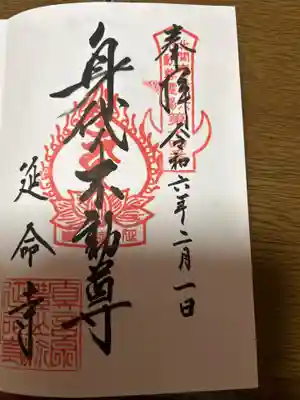 奉拝 令和六年二月一日
身代不動尊
延命寺